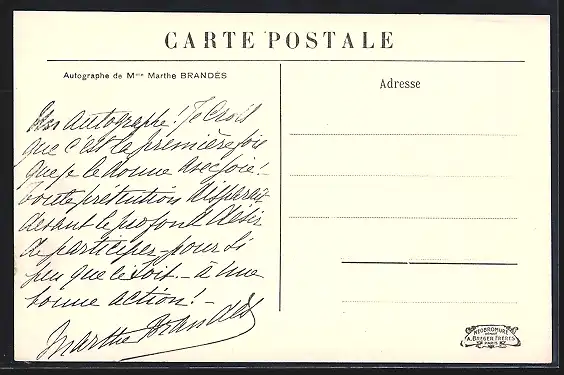 CARTE POSTALE
Autographe de Mme Marthe BRANDÈS
Adresse
Mon autographe! Je crois
que c'est la première fois
que je le donne avec joie! -
Toute prétention disparait
devant le profond désir
de participer - pour si
peu que ce soit - à une
bonne action! -
Marthe Brandès
NEOBROMURE
A. BREGER FRÈRES
PARIS